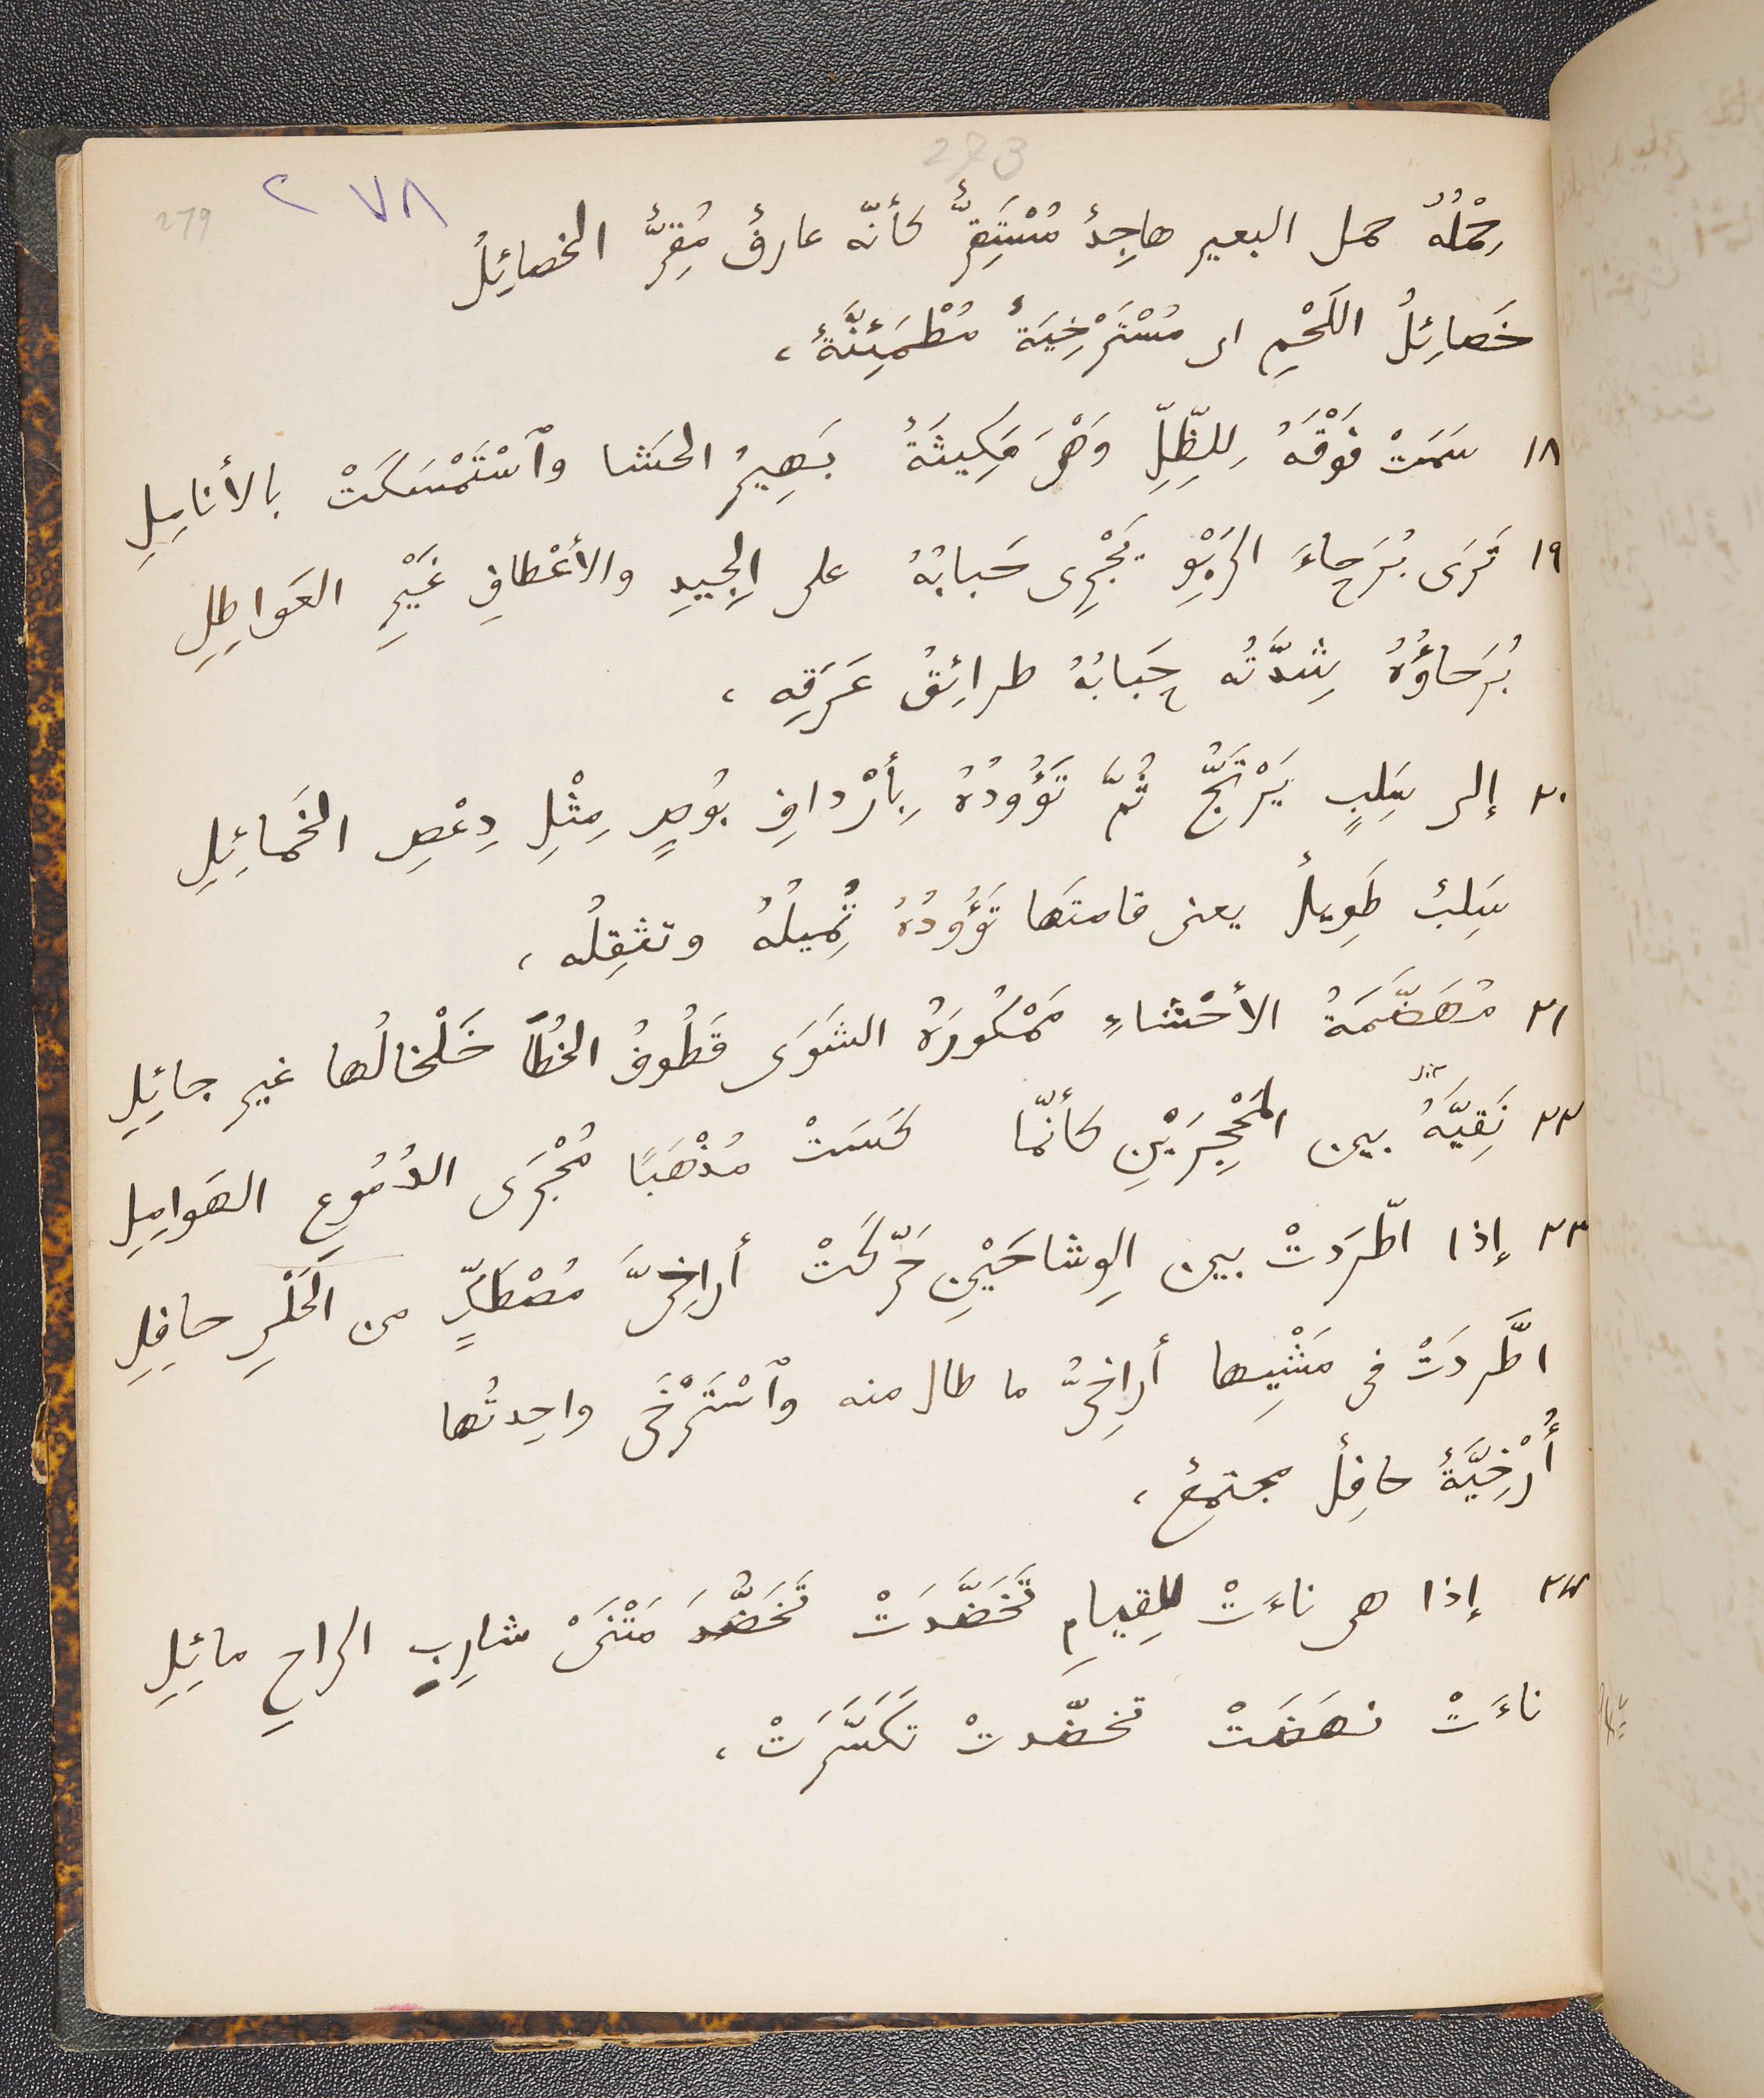 273
279
٢٧٨
حِمْلُهُ حمل البعير هاجِدٌ مُسْتَقِرٌّ كأنّه عارفٌ مُقِرٌّ الخصائِلُ
خَصائِلُ اللَحْمِ اى مُسْتَرْخِيَةٌ مُطْمَئِنَّةٌ،
١٨ سَمَتْ فَوْقَهُ لِلظِّلِّ وَهْىَ مَكِيثَةٌ بَهِيرُ الحَشا وٱسْتَمْسَكَتْ بالأنامِلِ
١٩ تَرَى بُرَحاءَ الرَبْوِ يَجْرِى حَبابُهُ على الجِيدِ والأعْطافِ غَيْرِ العَواطِلِ
بُرَحاؤُهُ شِدَّتُه حَبابُهُ طرائِقُ عَرَقِهِ،
٢٠ إلى سَلِبٍ يَرْتَجُّ ثُمَّ تَؤُودُهُ بِأرْدافِ بُوصٍ مِثْلِ دِعْصِ الخَمائِلِ
سَلِبٌ طَوِيلٌ يعنى قامتَها تَؤُودُهُ تُمِيلُهُ وتثقِلُه،
٢١ مُهَضَّمَةُ الأحْشاءِ مَمْكُورَةُ الشَوَى قَطُوفُ الخُطَا خَلْخالُها غير جائِلِ
٢٢ نَقِيَّةُ بين المَحْجِرَيْنِ كأنّما كَسَتْ مُذْهَبًا مُجْرَى الدُمُوعِ الهَوامِلِ
٢٣ إذا اطّرَدَتْ بين الوِشاحَيْنِ حَرّكَتْ أراخِىَّ مُصْطَكٍّ من الحَلْىِ حافِلِ
اطَّردَتْ فى مَشْيِها أراخِىُّ ما طال منه وٱسْتَرْخَى واحِدتُها
أُرْخِيَّةٌ حافِلٌ مجتمعٌ،
٢٤ إذا هى ناءَتْ لِلقِيامِ تَخَضَّدَتْ تَخَضُّدَ مَتْنَىْ شارِبِ الراحِ مائِلِ
ناءَتْ نهَضَتْ تخضّدتْ تَكَسَّرَتْ،